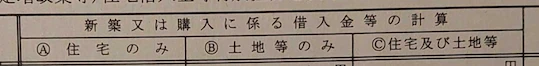 新築又は購入に係る借入金等の計算
Ⓐ 住宅のみ Ⓑ 土地等のみ Ⓒ住宅及び土地等
円 円